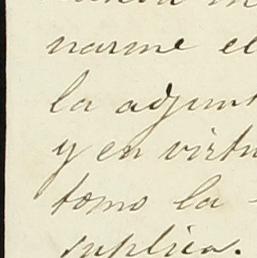 narme el
la adjunt
y en virtu
tomo la
suplica.